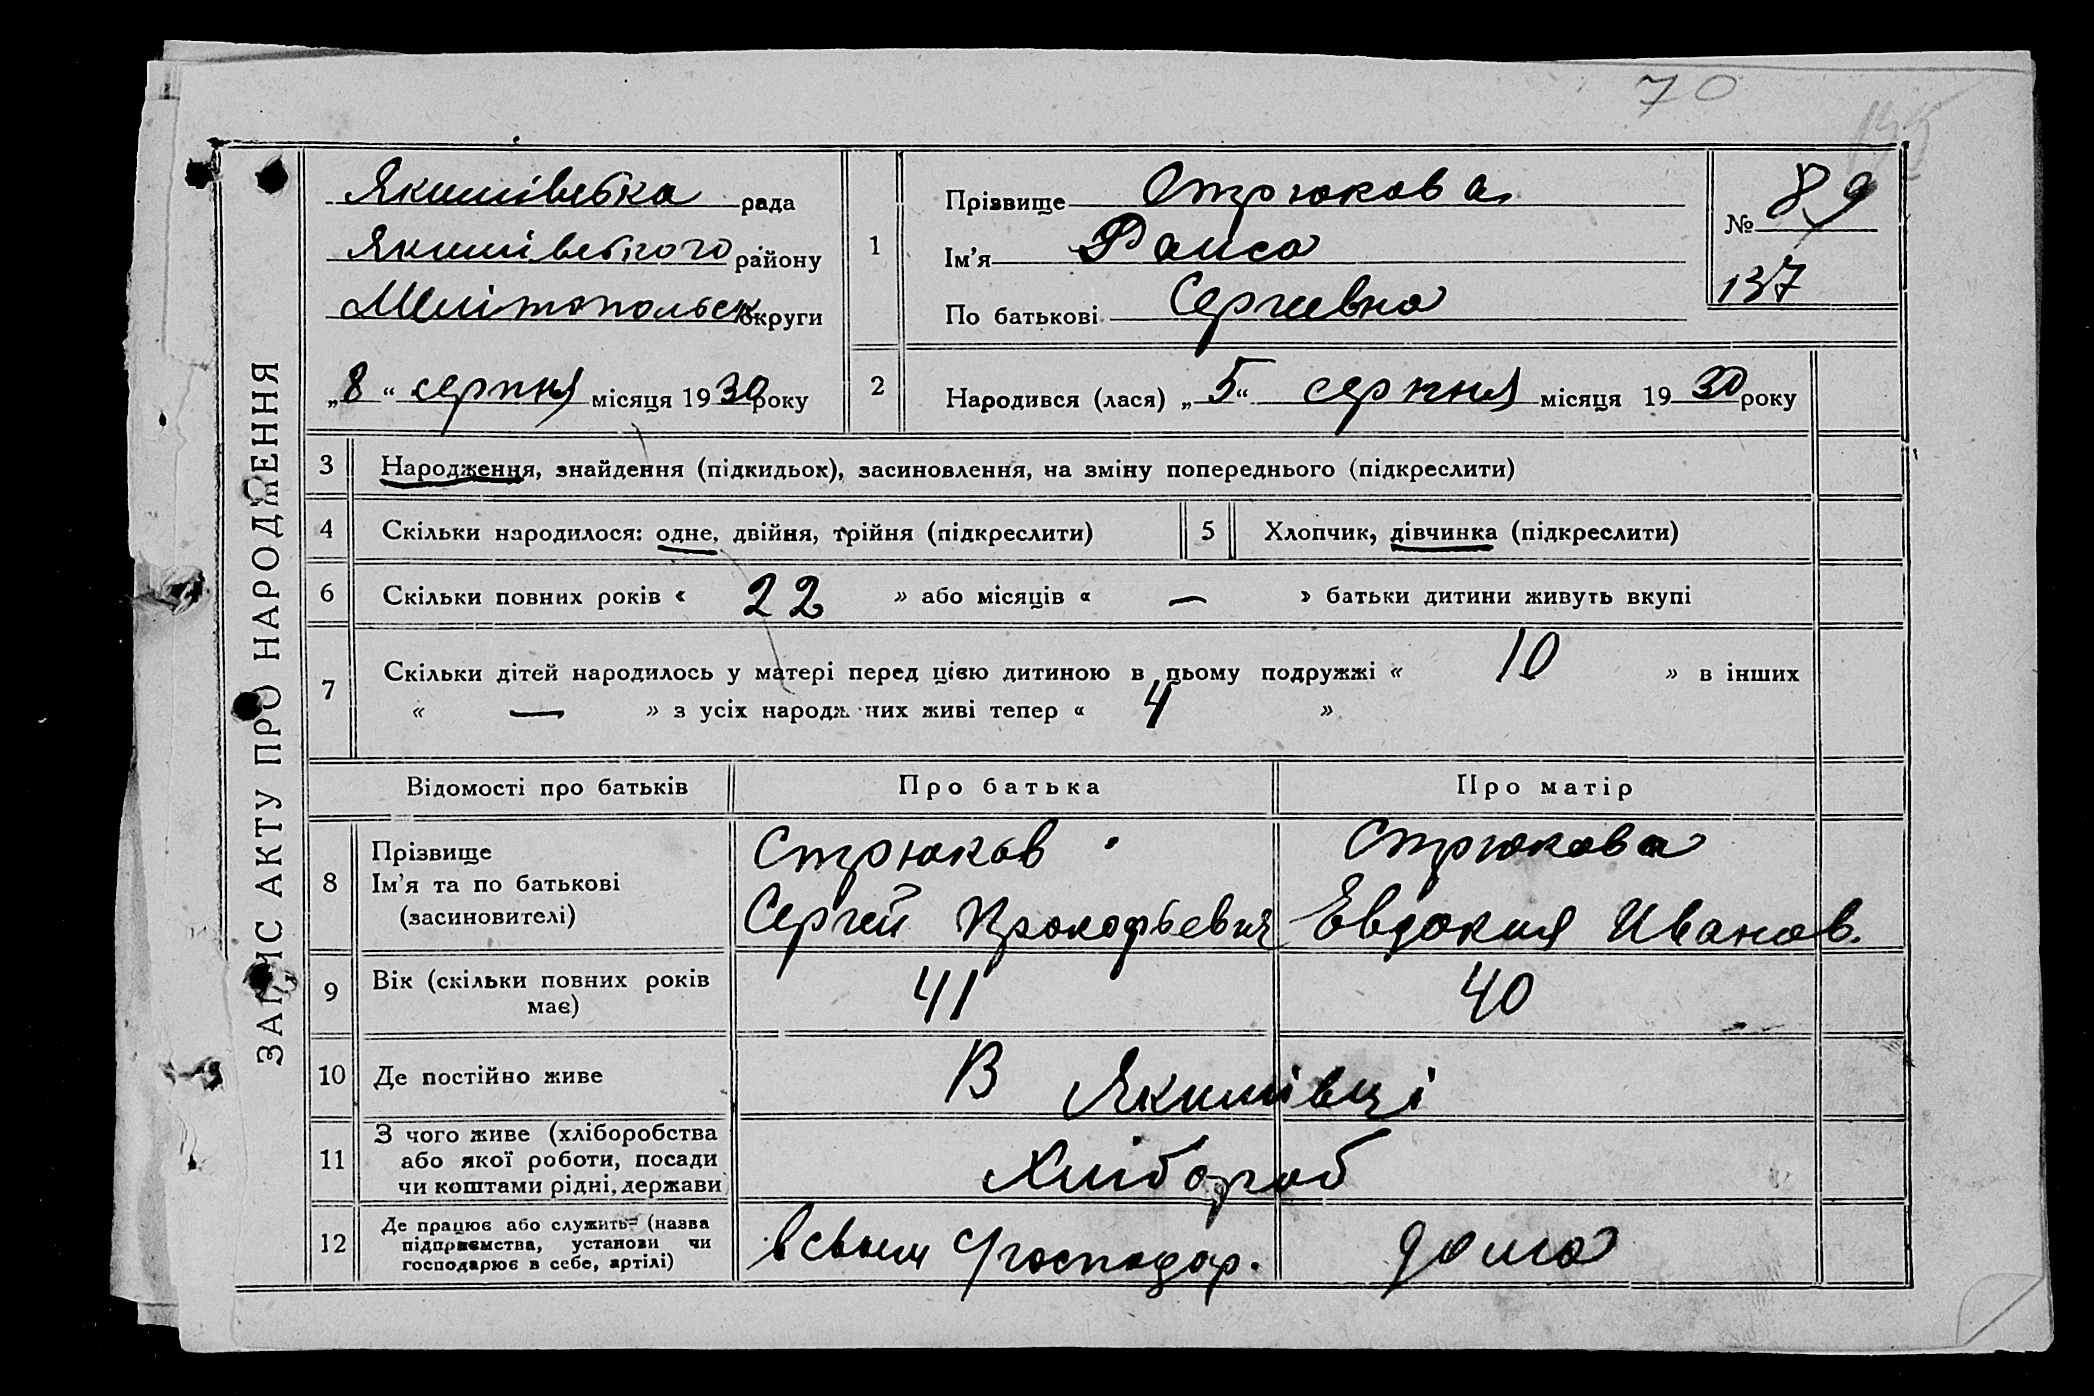 70
ЗАПИС АКТУ ПРО НАРОДЖЕННЯ
Якимівська рада
Якимівського району
Мелітопольськ округи
„8“ серпня місяця 1930 року
1
Прізвище Стрюкова
Ім’я Раиса
По батькові Сергеевна
№ 89
137
2
Народився (лася) „5“ серпня місяця 1930 року
3 Народження, знайдення (підкидьок), засиновлення, на зміну попереднього (підкреслити)
4 Скільки народилося: одне, двійня, трійня (підкреслити)
5 Хлопчик, дівчинка (підкреслити)
6 Скільки повних років « 22 » або місяців « — » батьки дитини живуть вкупі
7 Скільки дітей народилось у матері перед цією дитиною в цьому подружжі « 10 » в інших
« — » з усіх народж них живі тепер « 4 »
Відомості про батьків Про батька Про матір
8 Прізвище
Ім’я та по батькові
(засиновителі)
Стрюков
Сергей Прокофьевич
Стрюкова
Евдокия Иванов.
9 Вік (скільки повних років
має)
41 40
10 Де постійно живе В Якимівці
11 З чого живе (хліборобства
або якої роботи, посади
чи коштами рідні, держави
Хлібороб
12 Де працює або служить (назва
підприємства, установи чи
господарює в себе, артілі)
в своем господар. дома